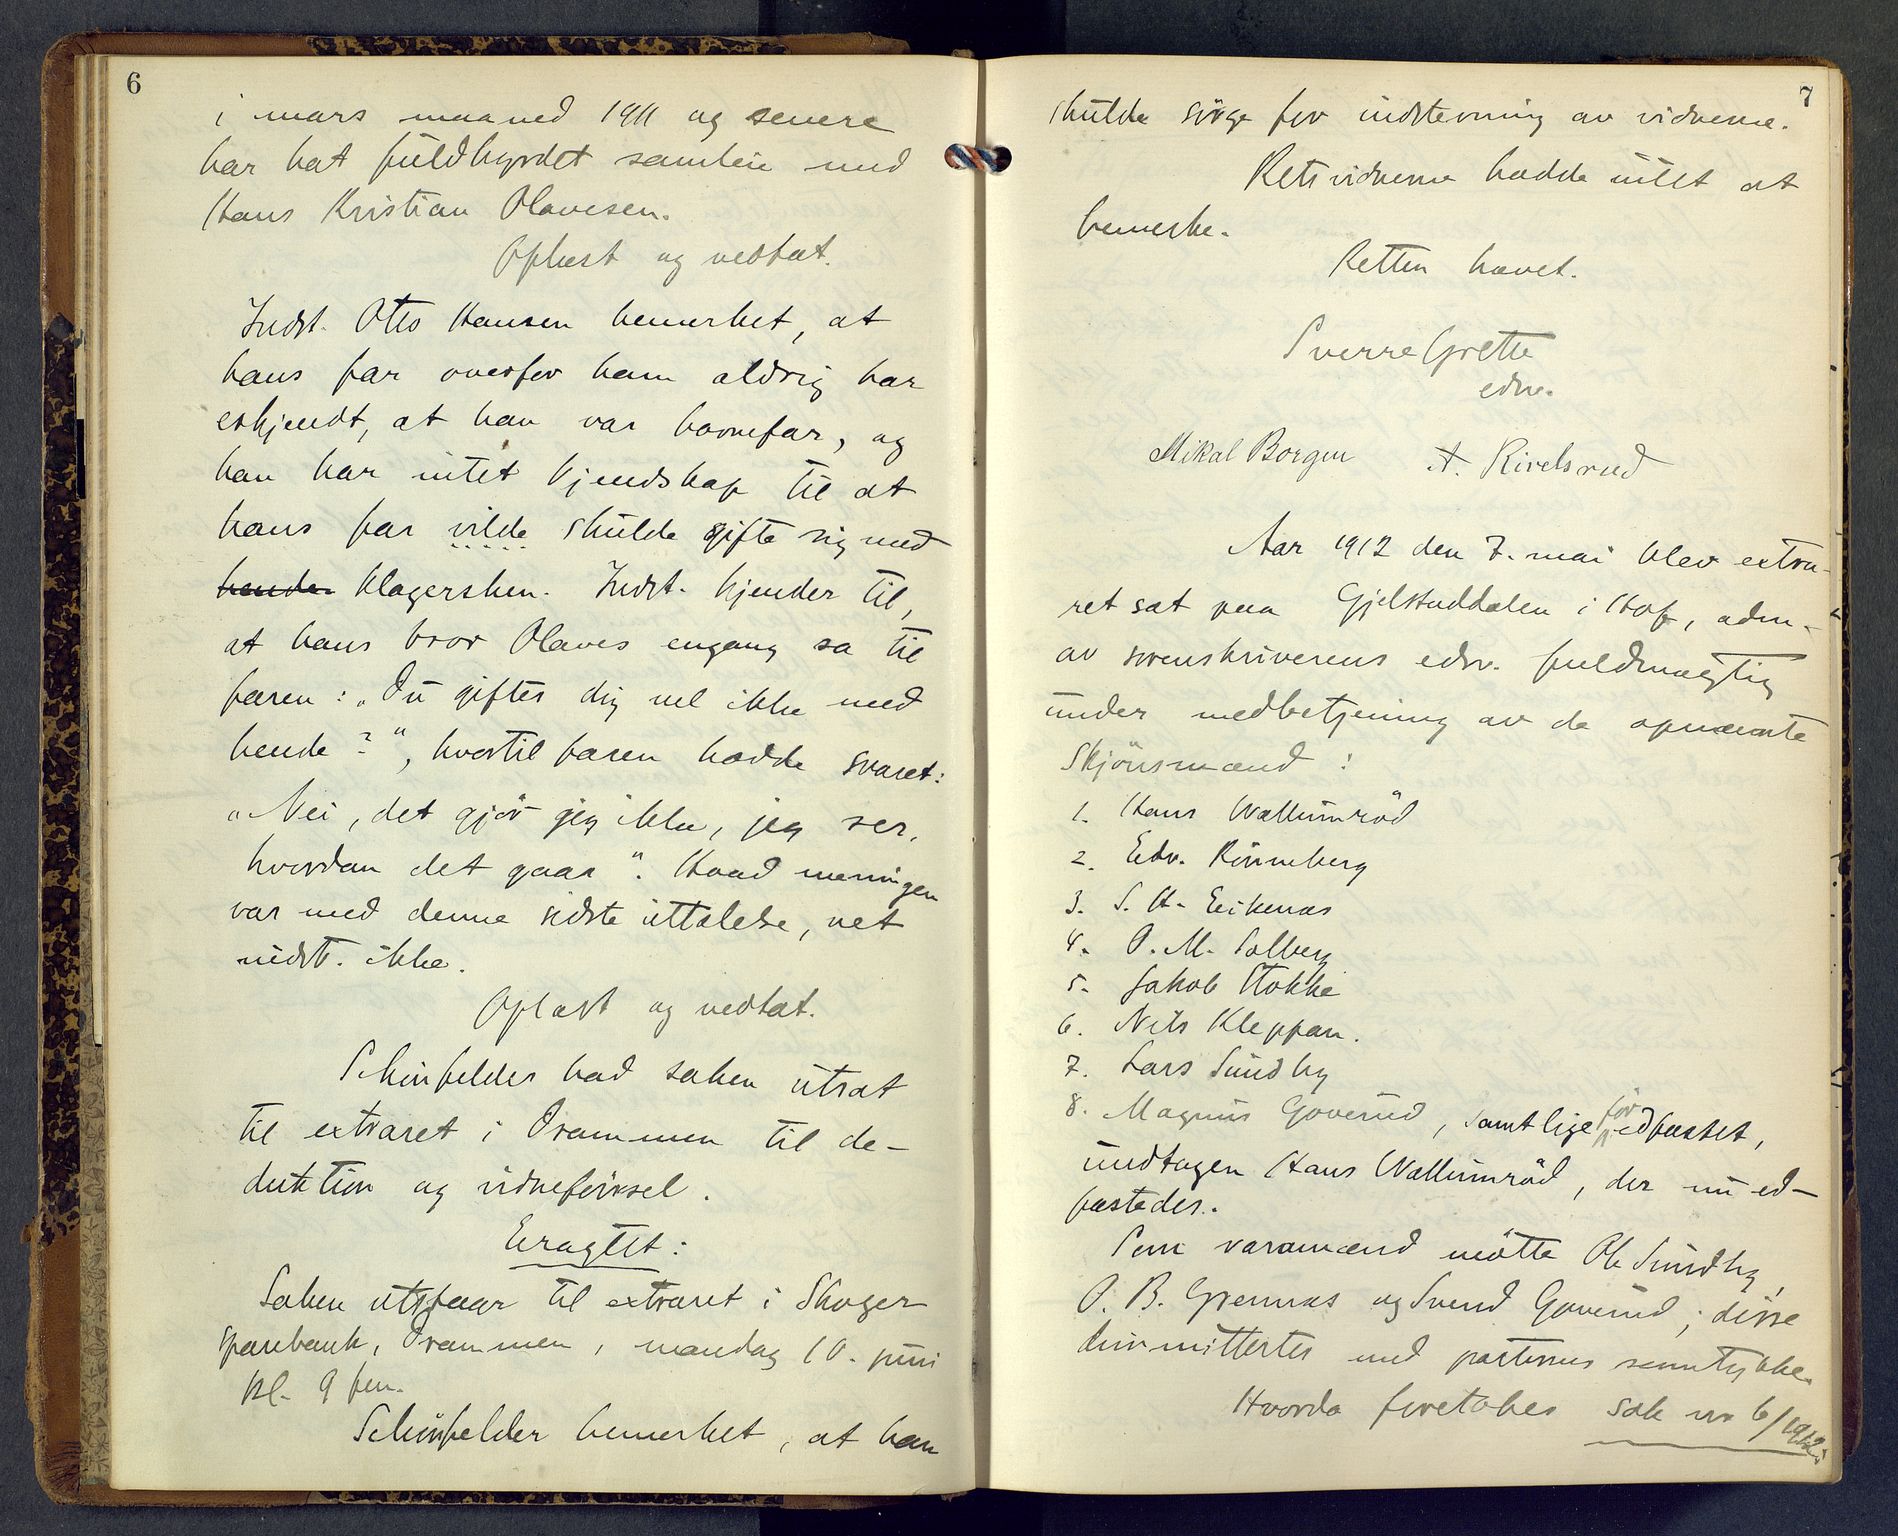 6
i mars maaned 1911 og senere
har hat fuldbyrdet samleie med
Hans Kristian Olavesen.
Oplæst og vedtat.
Indst. Otto Hansen bemerket, at
hans far overfor ham aldrig har
erkjendt, at han var barnefar, og
han har intet kjendskap til at
hans far vilde skulde gifte sig med
hende klagersken. Indst. kjender til,
at hans bror Olaves engang sa til
faren: „Du gifter dig vel ikke med
hende?“, hvortil faren hadde svaret:
„Nei, det gjør jeg ikke, jeg ser,
hvordan det gaar“. Hvad meningen
var med denne sidste uttalelse, vet
indst. ikke.
Oplæst og vedtat.
Schønfelder bad saken utsat
til extraret i Drammen til de-
duktion og vidneførsel.
Eragtet:
Saken utstaar til extraret i Skoger
sparebank, Drammen, mandag 10. juni
kl. 9 fm.
Schønfelder bemerket, at han
7
skulde sörge for indstevning av vidnerne.
Retsvidnerne hadde intet at
bemerke.
Retten hævet.
Sverre Grette
edsv.
Mikal Borgen A. Kivelsrud
Aar 1912 den 7. mai blev extra-
ret sat paa Gjelstaddalen i Hof, adm.
av sorenskriverens edsv. fuldmægtig
under medbetjening av de opnævnte
Skjönsmænd:
1. Hans Wallumröd
2. Edv. Rönneberg
3. S. H. Eikenæs
4. O. M. Solberg
5. Jakob Stokke
6. Nils Kleppan.
7. Lars Sundby
8. Magnus Goverud, samtlige för edfæstet,
undtagen Hans Wallumröd, der nu ed-
fæstedes.
Som varamænd mötte Ole Sundby,
O. B. Grennæs og Svend Goverud; disse
dimmittertes med partenes samtykke.
Hvorda foretokes sak nr 6/1912: